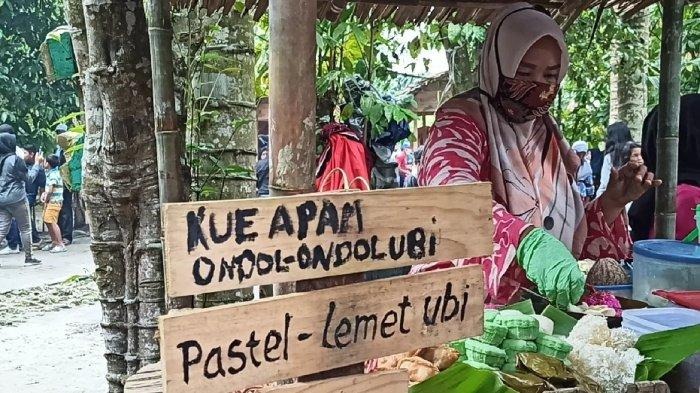 KUE APAM
ONDOL-ONDOL UBi
Pastel - Lemet ubi